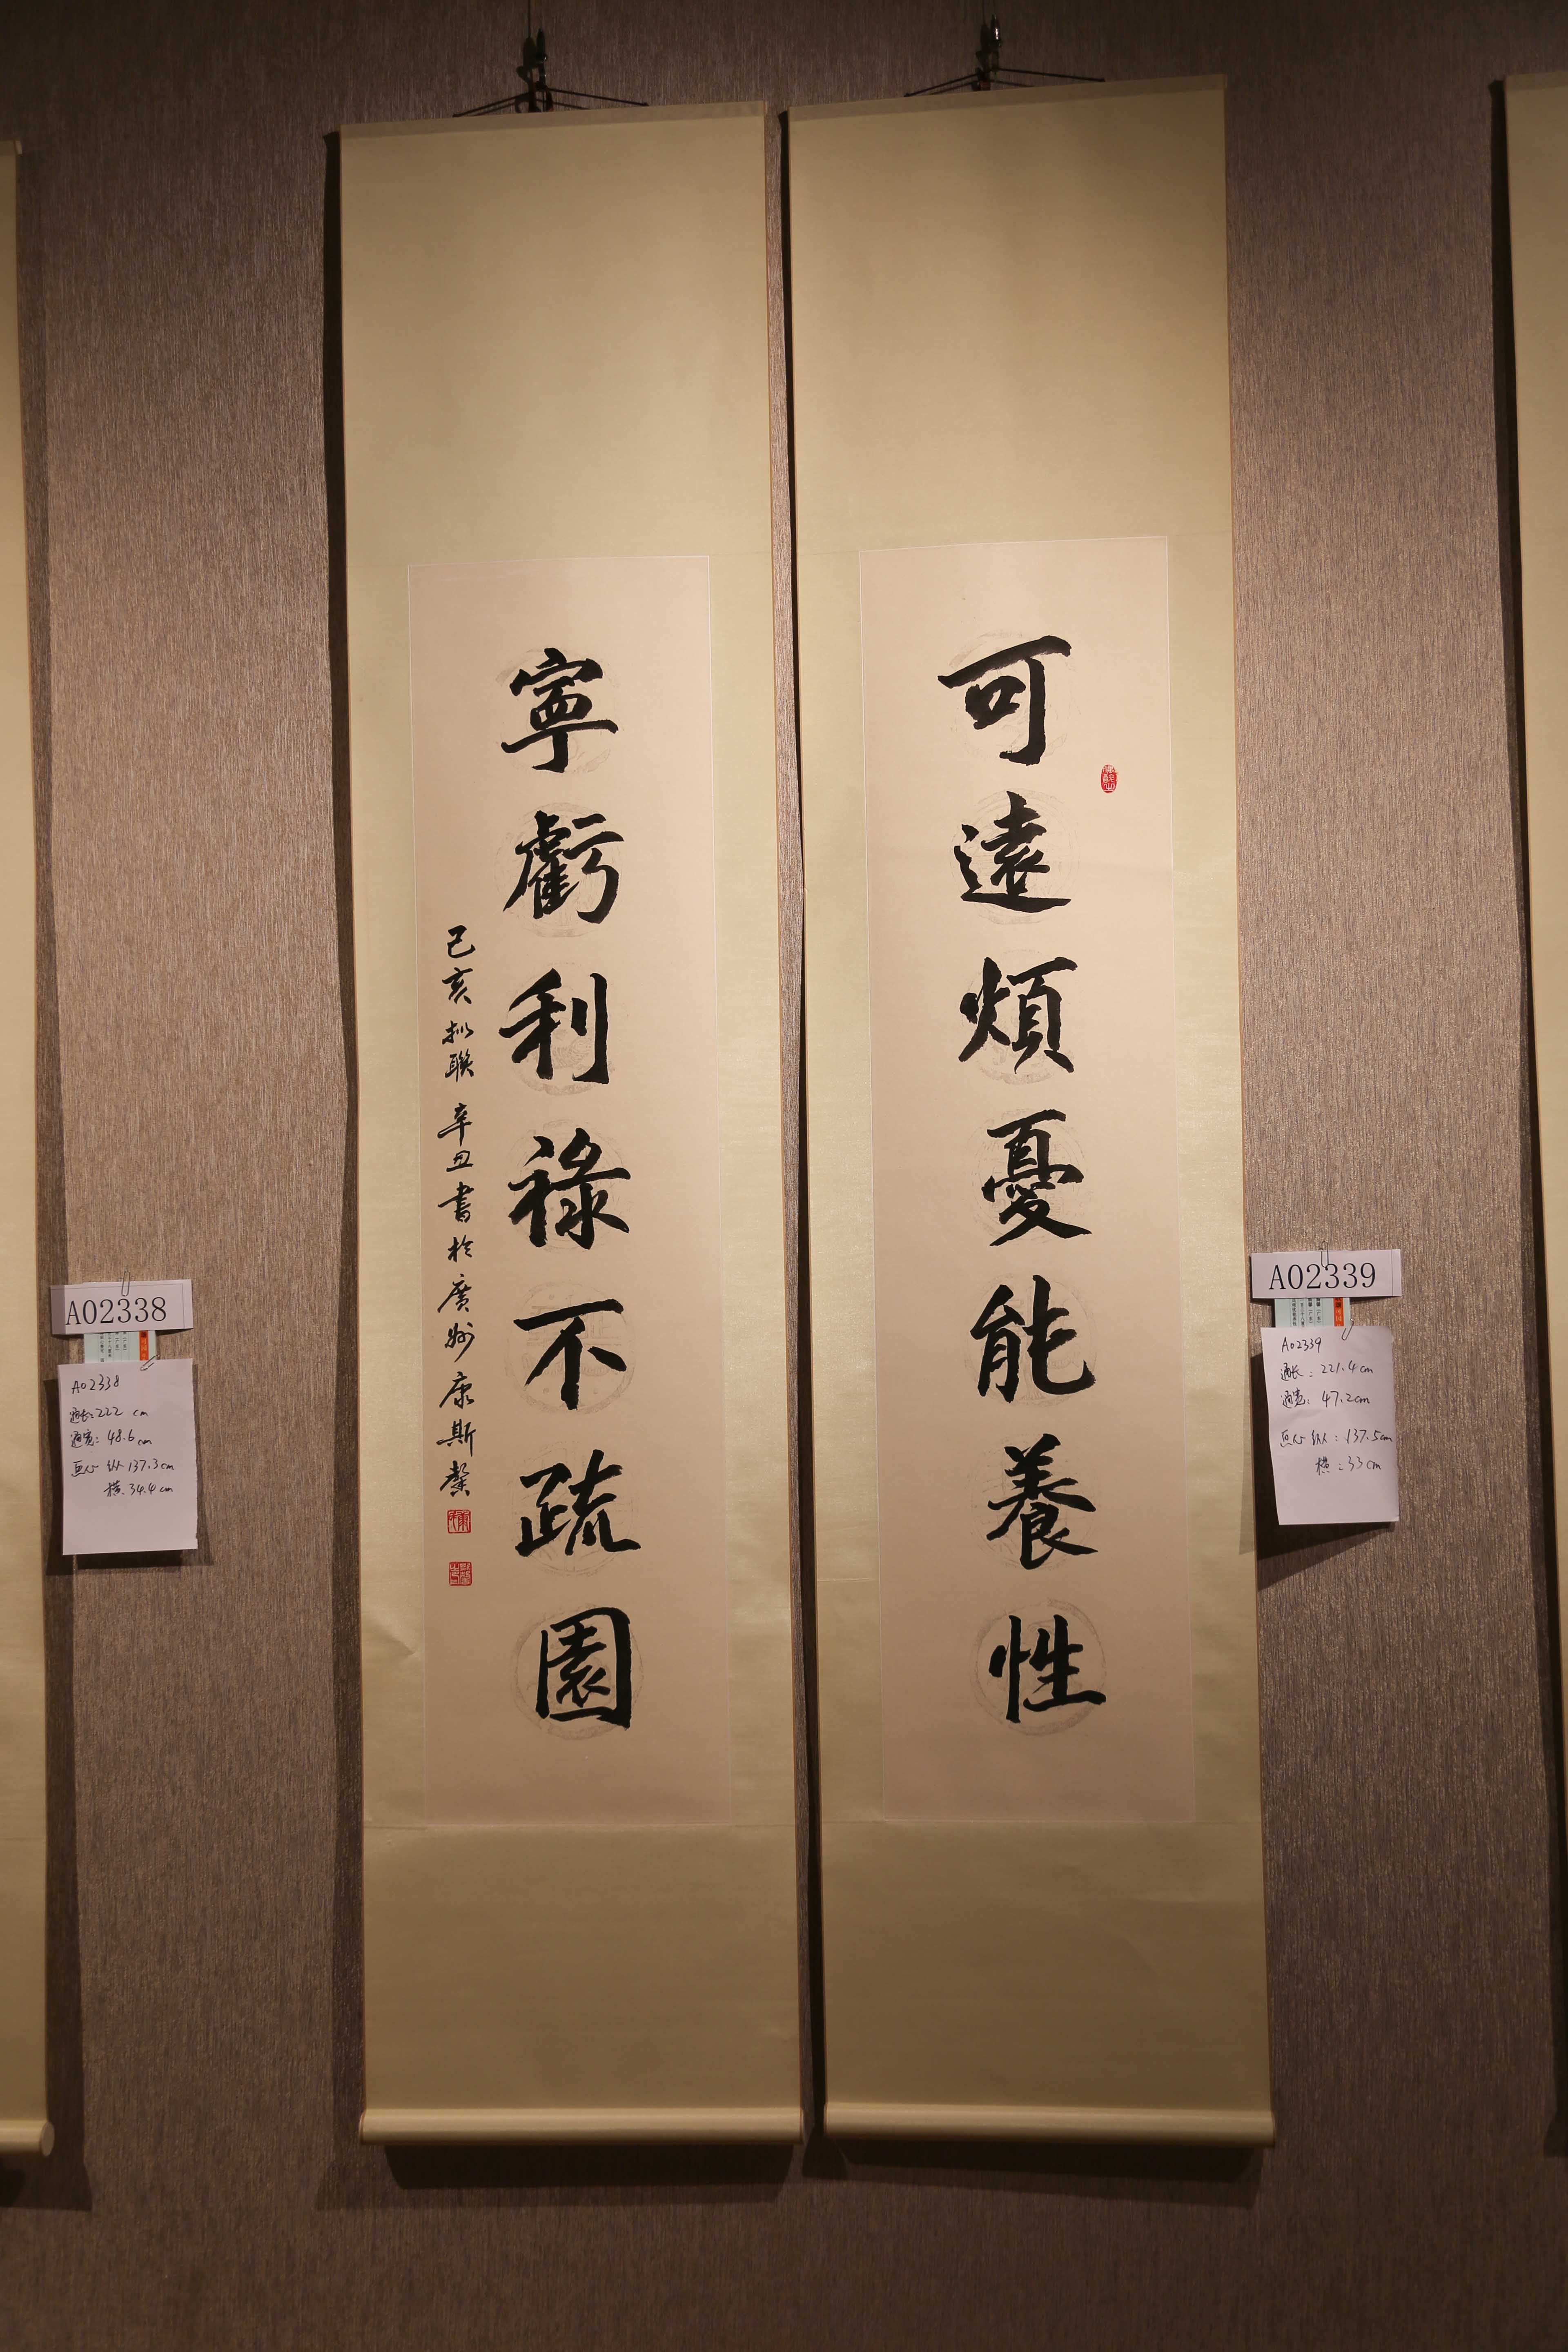 可遠煩憂能養性
寧虧利祿不疏園
己亥拟聯 辛丑書於廣州康斯馨
A02338
A02338
通长：222 cm
通宽：48.6 cm
画心 纵 137.3cm
横：34.4 cm
A02339
A02339
通长：221.4 cm
通宽：47.2cm
画心 纵：137.5cm
横：33cm